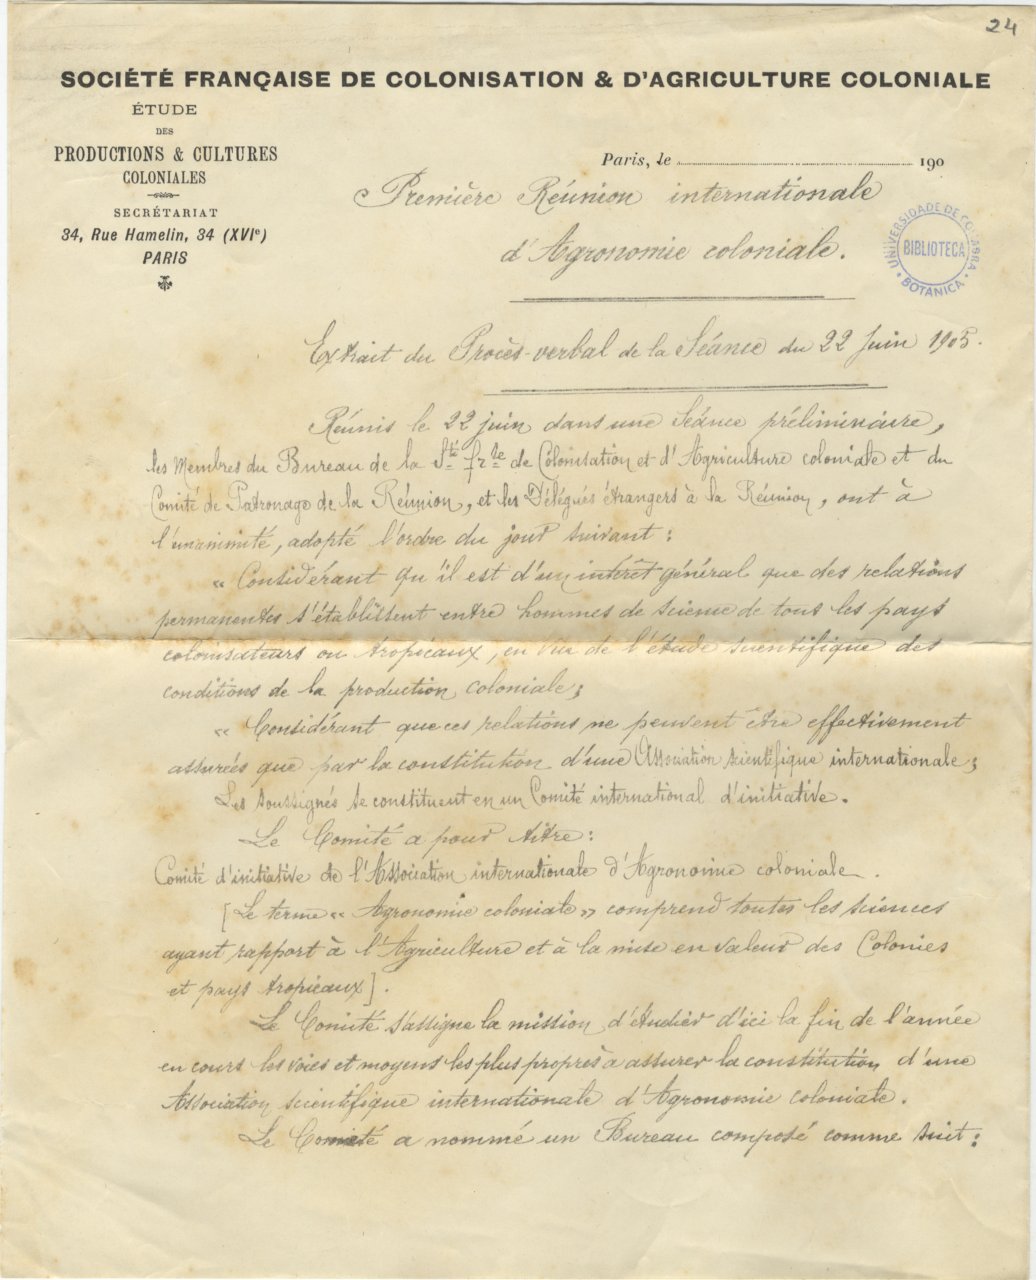 24
SOCIÉTÉ FRANÇAISE DE COLONISATION & D'AGRICULTURE COLONIALE
ÉTUDE
DES
PRODUCTIONS & CULTURES
COLONIALES
SECRÉTARIAT
34, Rue Hamelin, 34 (XVIe)
PARIS
Paris, le 190
Première Réunion internationale
d'Agronomie coloniale.
UNIVERSIDADE DE COIMBRA
BIBLIOTECA
BOTANICA
Extrait du Procès-verbal de la Séance du 22 Juin 1905.
Réunis le 22 juin dans une Séance préliminaire,
les Membres du Bureau de la Sté frse de Colonisation et d'Agriculture coloniale et du
Comité de Patronage de la Réunion, et les Délégués étrangers à la Réunion, ont à
l'unanimité, adopté l'ordre du jour suivant:
« Considérant qu'il est d'un intérêt général que des relations
permanentes s'établissent entre hommes de science de tous les pays
colonisateurs ou tropicaux, en vue de l'étude scientifique des
conditions de la production coloniale;
« Considérant que ces relations ne peuvent être effectivement
assurées que par la constitution d'une Association scientifique internationale;
Les soussignés se constituent en un Comité international d'initiative.
Le Comité a pour titre:
Comité d'initiative de l'Association internationale d'Agronomie coloniale.
[Le terme « Agronomie coloniale » comprend toutes les sciences
ayant rapport à l'Agriculture et à la mise en valeur des Colonies
et pays tropicaux].
Le Comité s'assigne la mission d'étudier d'ici la fin de l'année
en cours les voies et moyens les plus propres à assurer la constitution d'une
Association scientifique internationale d'Agronomie coloniale.
Le Comité a nommé un Bureau composé comme suit: